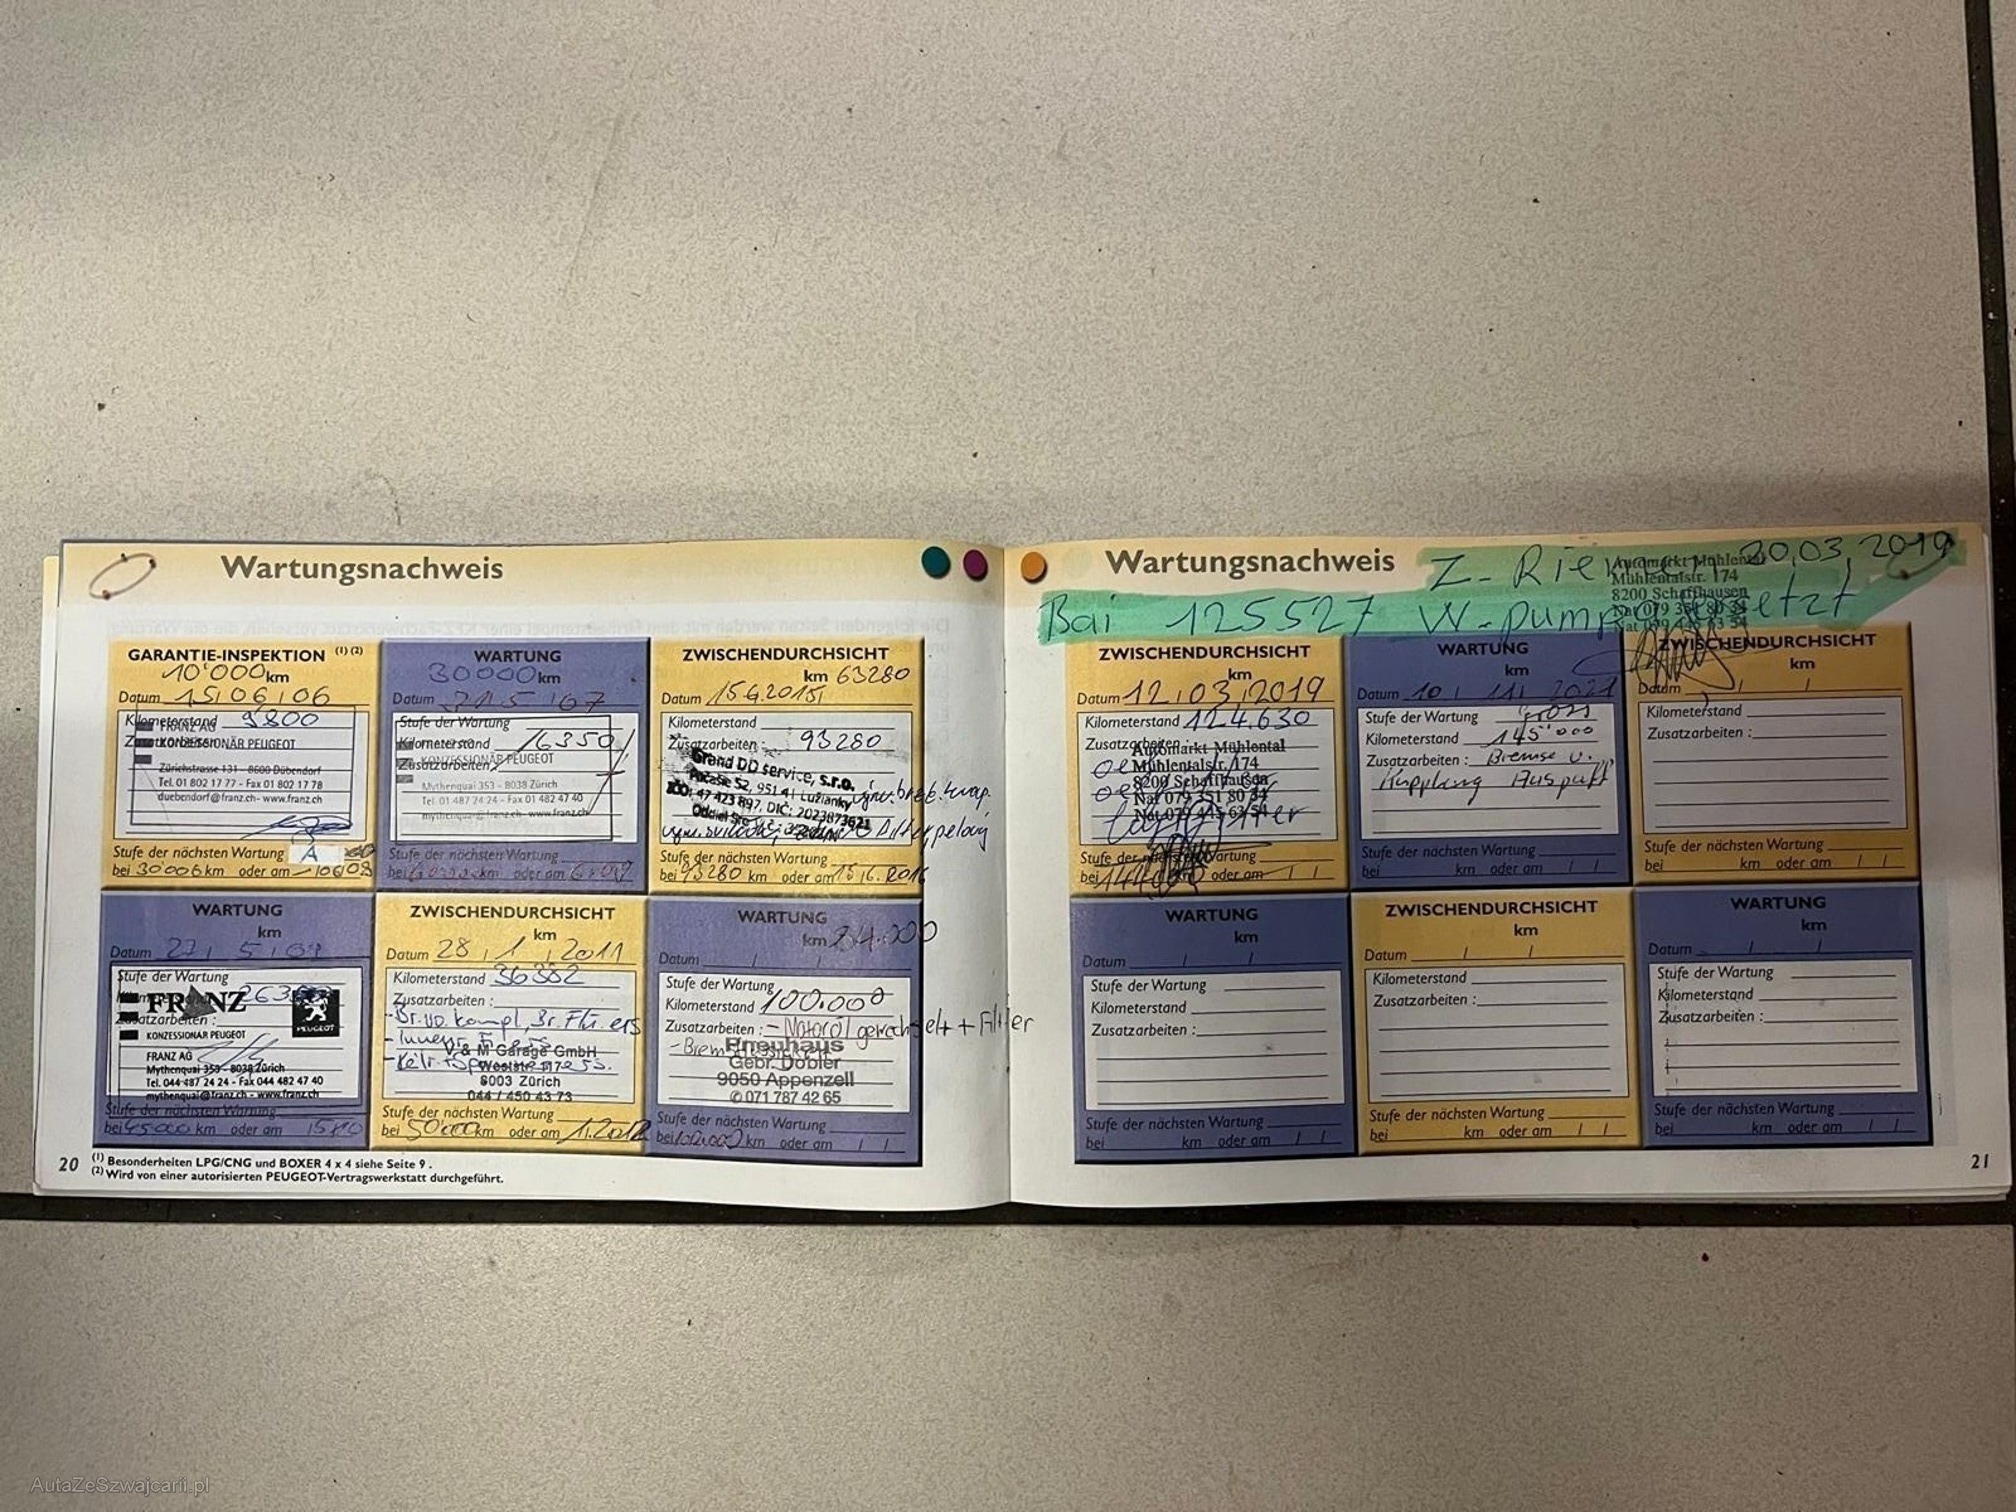 Wartungsnachweis
GARANTIE-INSPEKTION (1) (2)
10'000 km
Datum 15 06 06
Kilometerstand 9800
FRANZ AG
KONZESSIONÄR PEUGEOT
Zürichstrasse 131 - 8600 Dübendorf
Tel. 01 802 17 77 - Fax 01 802 17 78
duebendorf@franz.ch - www.franz.ch
Stufe der nächsten Wartung A
bei 30000 km oder am
WARTUNG
30000 km
Datum 21 5 07
Stufe der Wartung
Kilometerstand 16350
Zusatzarbeiten
KONZESSIONÄR PEUGEOT
Mythenquai 353 - 8038 Zürich
Tel. 01 487 24 24 - Fax 01 482 47 40
mythenquai@franz.ch - www.franz.ch
Stufe der nächsten Wartung
bei km oder am
ZWISCHENDURCHSICHT
km 63280
Datum 15.6.2015
Kilometerstand
Zusatzarbeiten 93280
Grand DD service, s.r.o.
951 41 Lužianky
IČO: 47 423 897, DIČ: 2023873621
Stufe der nächsten Wartung
bei 93280 km oder am 15.6.2016
WARTUNG
km
Datum 27 5
Stufe der Wartung
FRANZ
PEUGEOT
Zusatzarbeiten :
KONZESSIONÄR PEUGEOT
FRANZ AG
Mythenquai 353 - 8038 Zürich
Tel. 044 487 24 24 - Fax 044 482 47 40
mythenquai@franz.ch - www.franz.ch
Stufe der nächsten Wartung
bei 45000 km oder am
ZWISCHENDURCHSICHT
km
Datum 28 1 2011
Kilometerstand 36382
Zusatzarbeiten :
- Br. vo. kompl, Br. Flü. ers
V & M Garage GmbH
8003 Zürich
044 / 450 43 73
Stufe der nächsten Wartung
bei 50'000 km oder am 1.2012
WARTUNG
km
Datum
Stufe der Wartung
Kilometerstand 100.000
Zusatzarbeiten : - Motoröl gewechselt + Filter
Pneuhaus
Gebr. Dobler
9050 Appenzell
✆ 071 787 42 65
Stufe der nächsten Wartung
bei km oder am
20
(1) Besonderheiten LPG/CNG und BOXER 4 x 4 siehe Seite 9 .
(2) Wird von einer autorisierten PEUGEOT-Vertragswerkstatt durchgeführt.
Wartungsnachweis
Z-Riemen 30,03,2019
Bai 125527 W-pumpe ersetzt
Automarkt Mühlental
Mühlentalstr. 174
8200 Schaffhausen
Nat 079 351 80 34
Nat 079 445 63 54
ZWISCHENDURCHSICHT
km
Datum 12 03 2019
Kilometerstand 124.630
Zusatzarbeiten :
Automarkt Mühlental
Mühlentalstr. 174
8200 Schaffhausen
Nat 079 351 80 34
Nat 079 445 63 54
Stufe der nächsten Wartung
bei km oder am
WARTUNG
km
Datum 10 11 2021
Stufe der Wartung gross
Kilometerstand 145'000
Zusatzarbeiten : Bremse u.
Kupplung Auspuff
Stufe der nächsten Wartung
bei km oder am
ZWISCHENDURCHSICHT
km
Datum
Kilometerstand
Zusatzarbeiten :
Stufe der nächsten Wartung
bei km oder am
WARTUNG
km
Datum
Stufe der Wartung
Kilometerstand
Zusatzarbeiten :
Stufe der nächsten Wartung
bei km oder am
ZWISCHENDURCHSICHT
km
Datum
Kilometerstand
Zusatzarbeiten :
Stufe der nächsten Wartung
bei km oder am
WARTUNG
km
Datum
Stufe der Wartung
Kilometerstand
Zusatzarbeiten :
Stufe der nächsten Wartung
bei km oder am
21
AutaZeSzwajcarii.pl